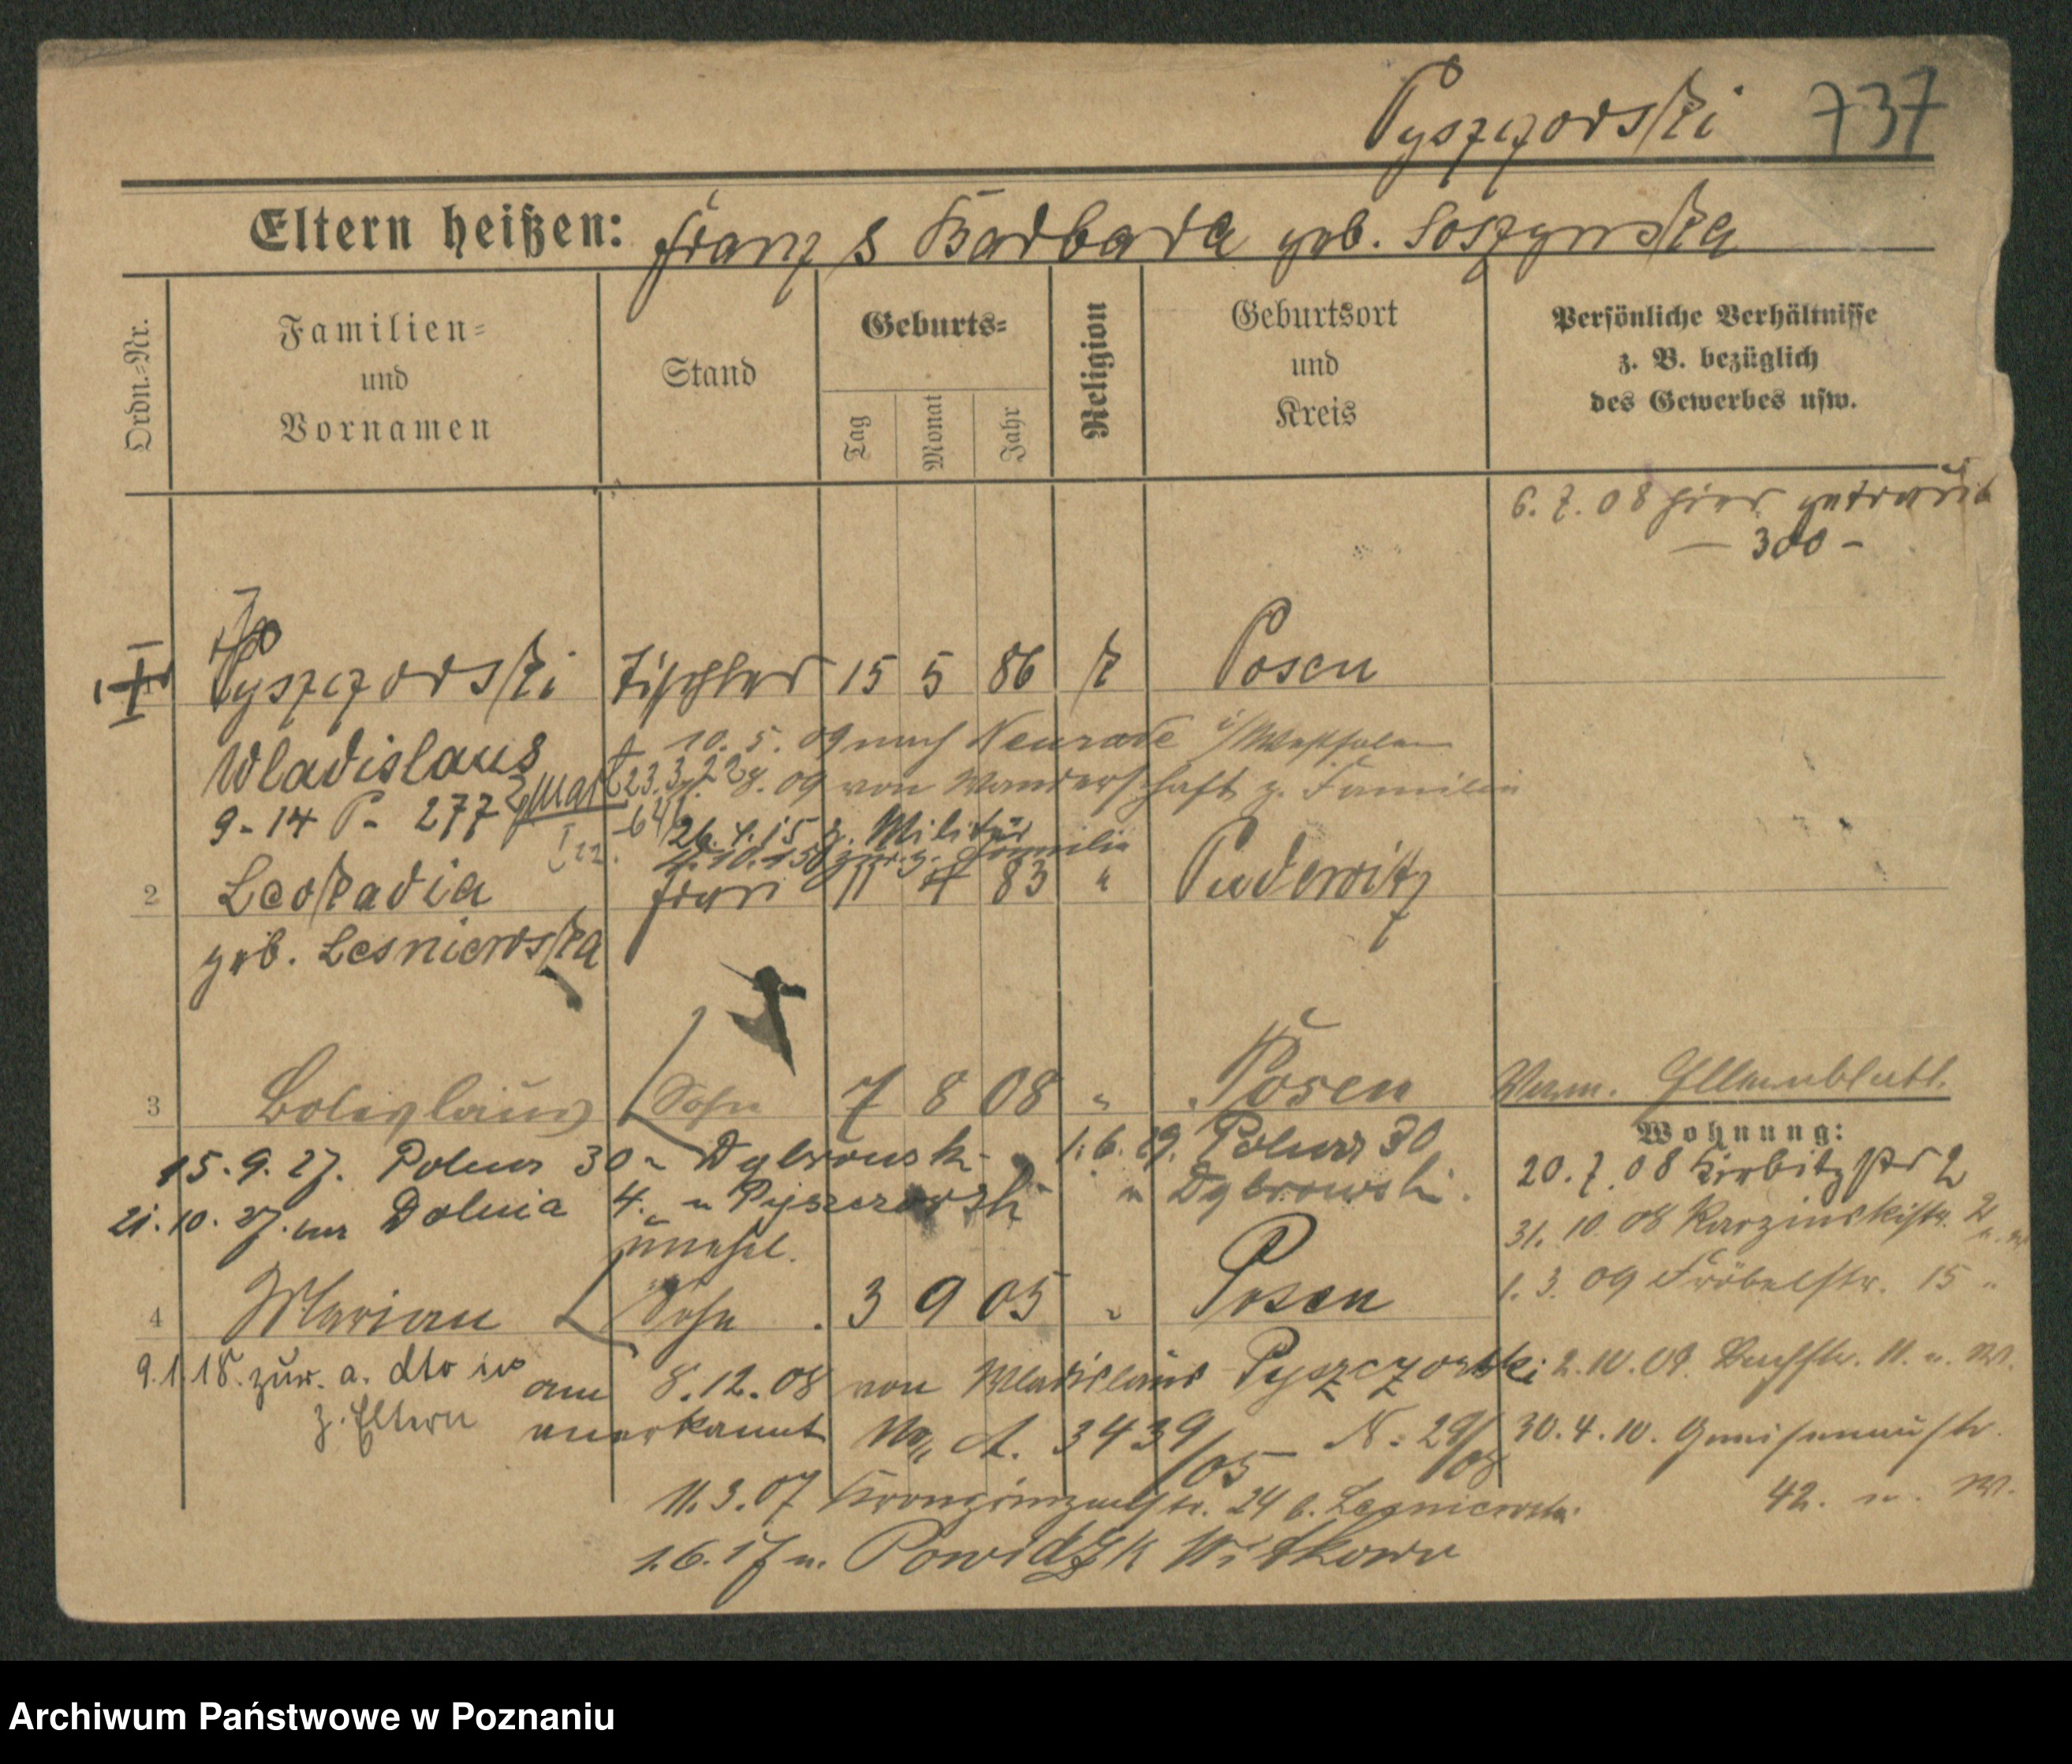 Pyszczorski 737
Eltern heißen: Franz & Barbara geb. Soszynska
Ordn.=Nr.
Familien=
und
Vornamen
Stand
Geburts=
Tag
Monat
Jahr
Religion
Geburtsort
und
Kreis
Persönliche Verhältnisse
z. B. bezüglich
des Gewerbes usw.
6. 7. 08 hier getraut
— 300 —
Pyszczorski Tischler 15 5 86 k Posen
Wladislaus
10. 5. 09 nach Neurade i/Westfalen
† 23.3.22 8. 09 von Wanderschaft z. Familie
9-14 P- 277
26. 4. 15 z. Militär
10. 15 zur. z. Familie
2 Leokadia Frau 11 4 83 " Pudewitz
geb. Lesniewska
3 Boleslaus Sohn 7 8 08 " Posen
Wohnung:
15. 9. 27. Polna 30 Dybrowsk 1. 6. 29. Polna 30
21. 10. 27. Dolnia 4. Pyszczorsk Dybrowski.
20. 7. 08
31. 10. 08 Karzinskistr. 2
unehel.
4 Marian Sohn 3 9 05 " Posen
1. 3. 09 Fröbelstr. 15 "
9.1.18. zur. a. dto
z. Eltern
am 8.12.08 von Wladislaus Pyszczorski
anerkannt A. 3439/05 N. 29/08
2. 10. 09. Bachstr. 11.
30. 4. 10. Gneisenaustr.
42.
11. 3. 07 Kronprinzenstr. 24 b. Lesniewska
1.6.17 n. Powidz K Witkowo
Archiwum Państwowe w Poznaniu